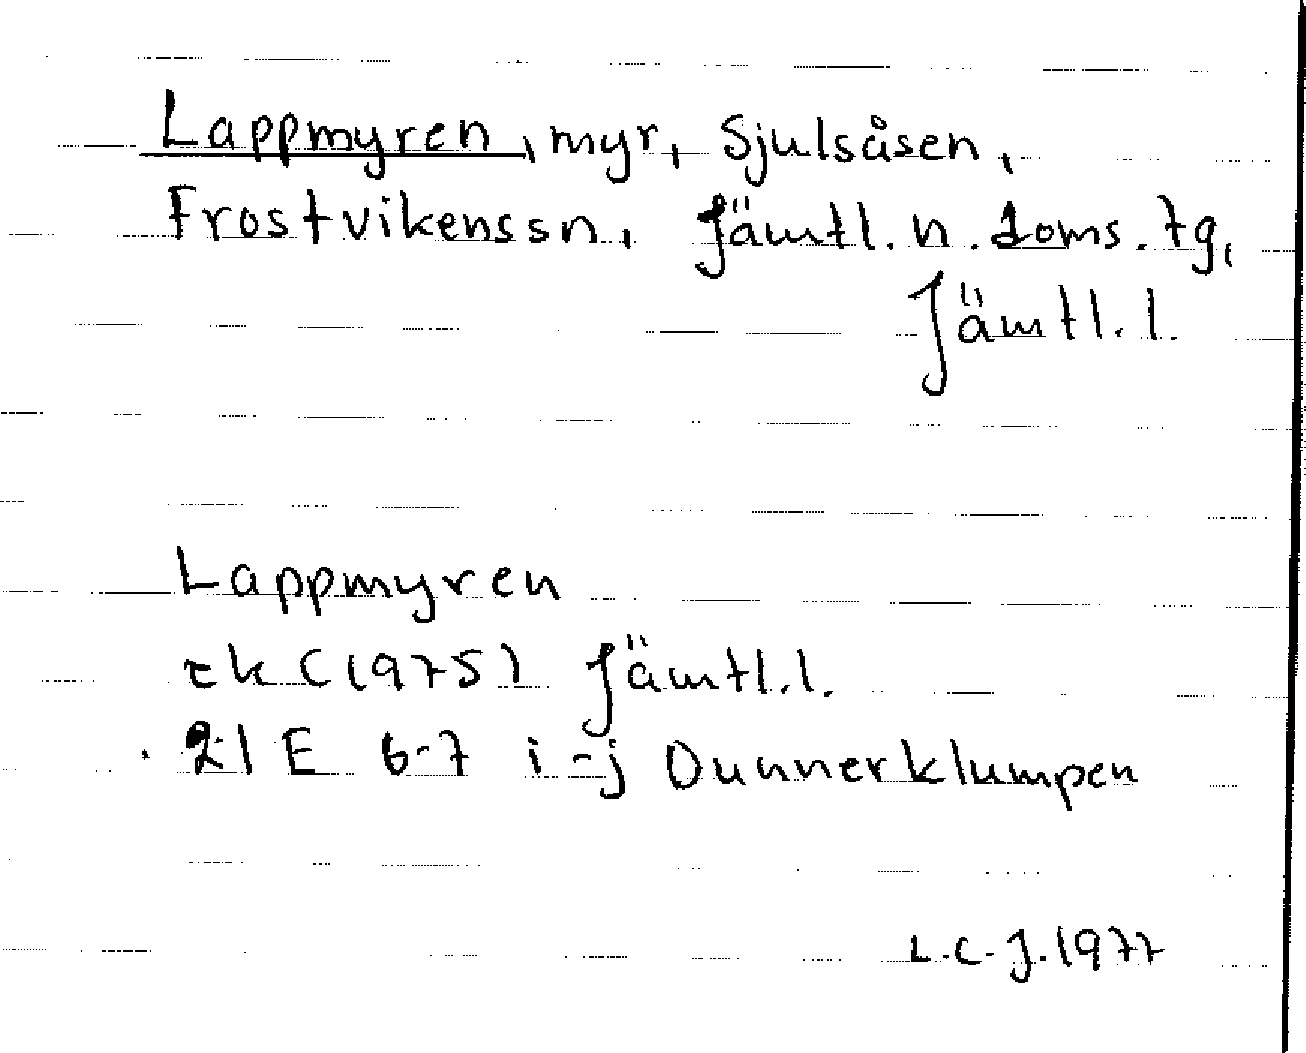 Lappmyren, myr, Sjulsåsen,
Frostvikens sn, Jämtl. n. doms. tg,
Jämtl. l.
Lappmyren
ek C (1975) Jämtl. l.
21 E 6-7 i-j Dunnerklumpen
L.C.J. 1977